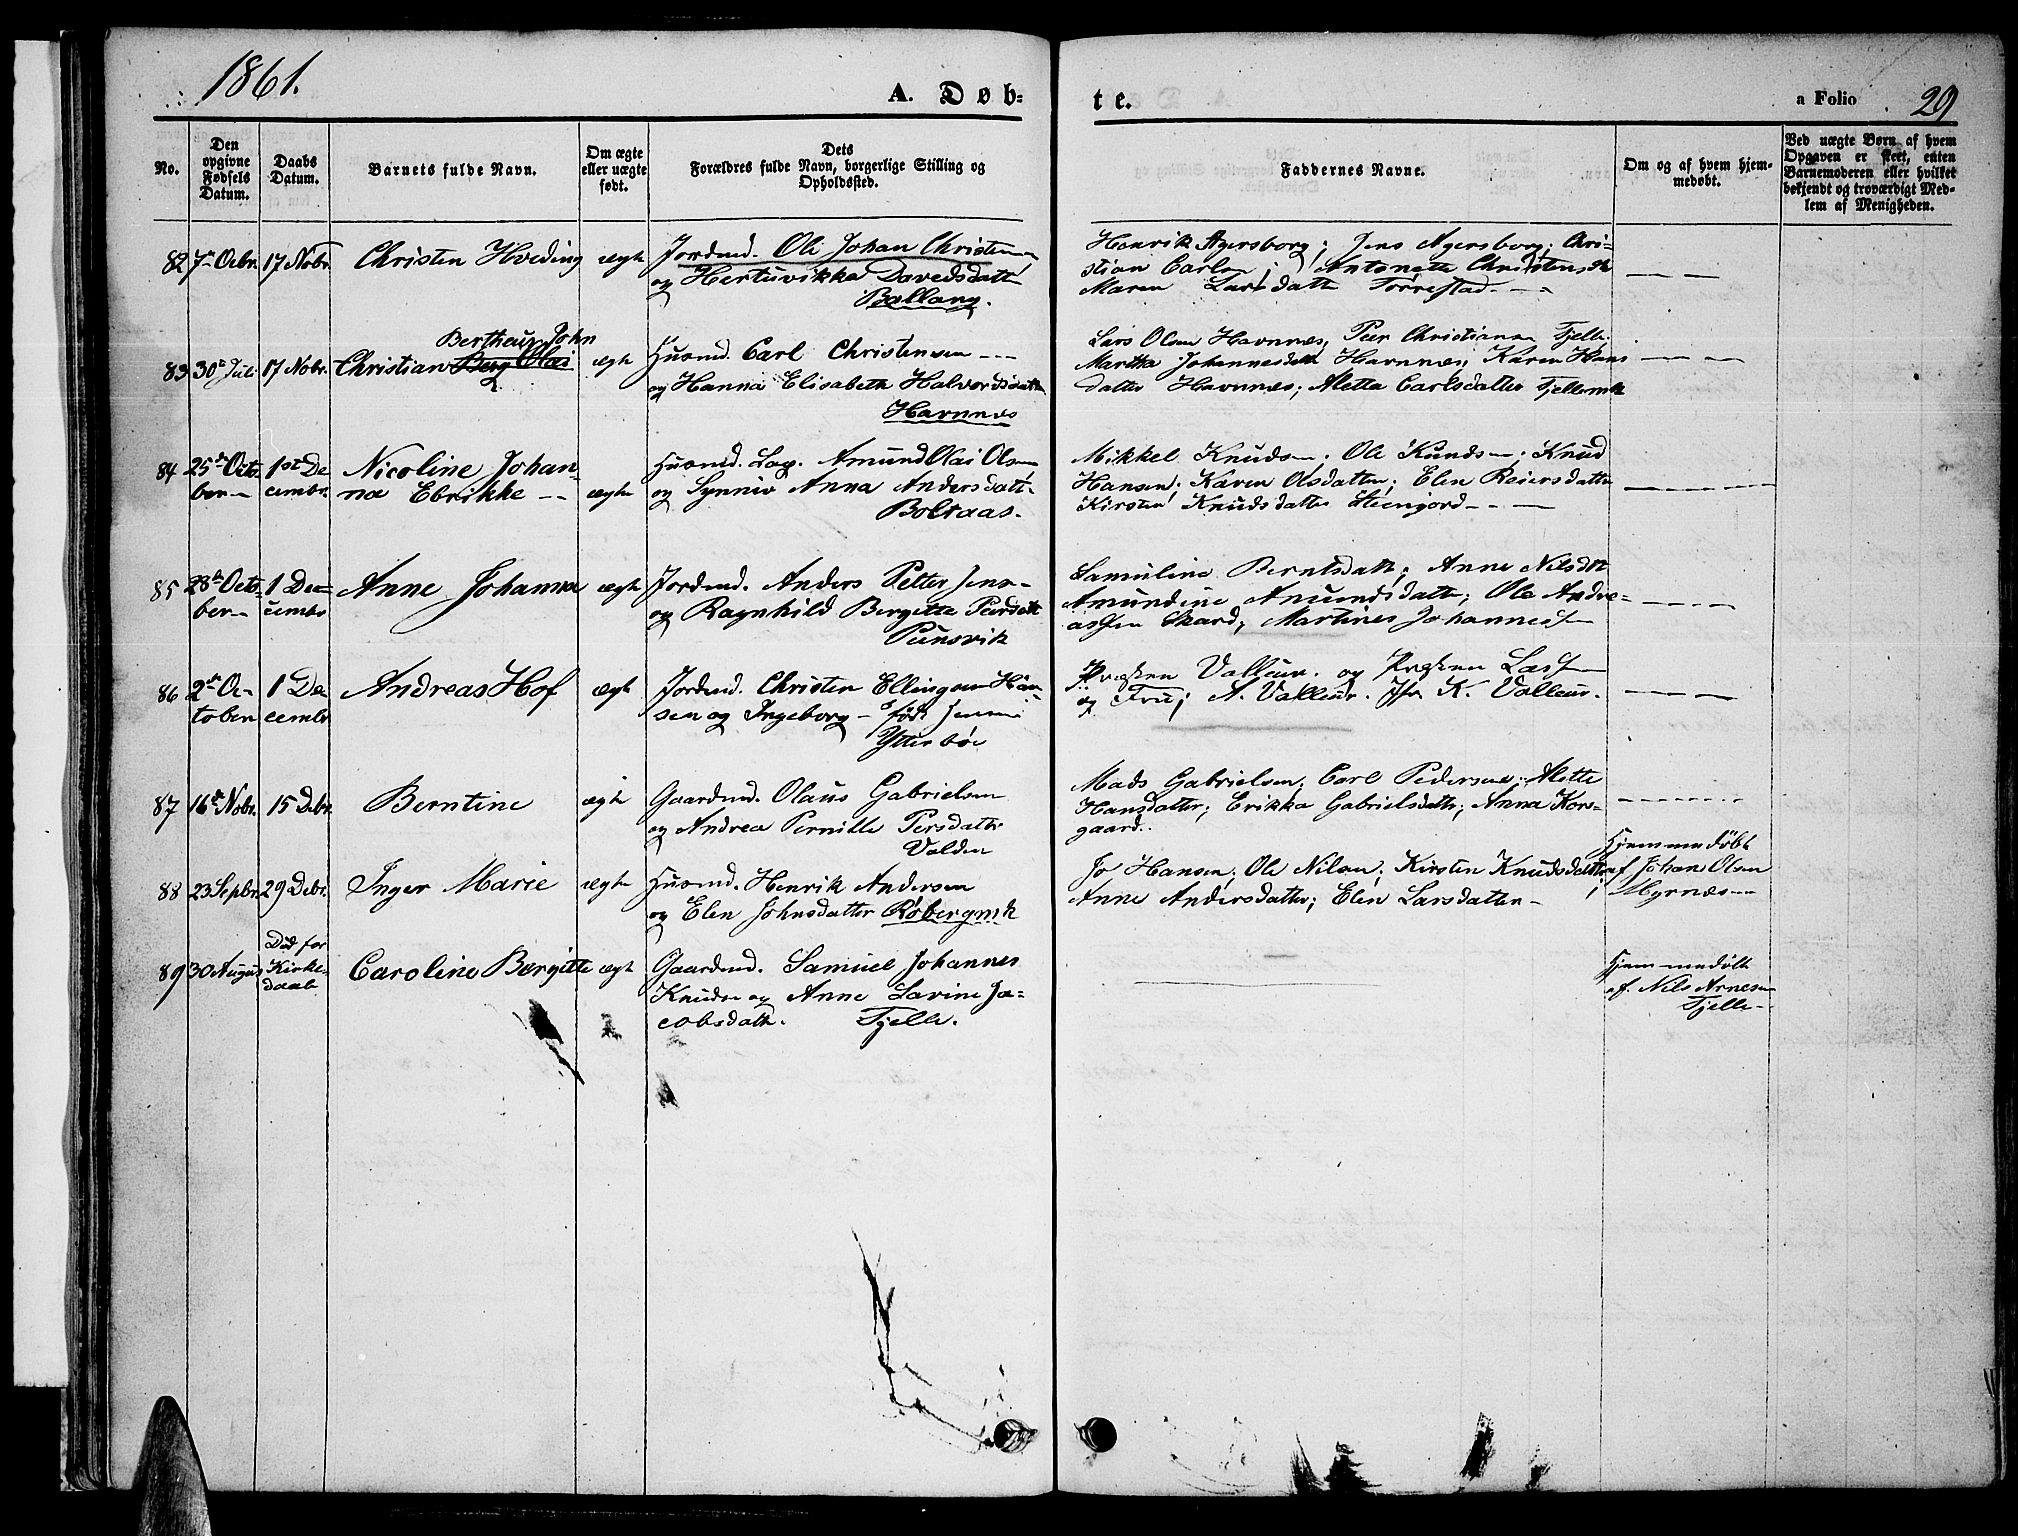 1861.
A. Døb-
te.
a Folio 29
No.
Den opgivne Fødsels Datum.
Daabs Datum.
Barnets fulde Navn.
Om ægte eller uægte født.
Dets Forældres fulde Navn, borgerlige Stilling og Opholdssted.
Faddernes Navne.
Om og af hvem hjem-
medøbt.
Ved uægte Børn af hvem Opgaven er skeet, enten Barnemoderen eller hvilket bekjendt og troværdigt Med-
lem af Menigheden.
82 7de Ocbr. 17 Nobr. Christen Hveding ægte
Jordmd. Ole Johan Christensen
og Hertuvikka Davedsdatt
Ballang.
Henrik Agersborg; Jens Agersborg; Chri-
stian Carls ; Antonette Christensdt
Maren Larsdatter Torrestad
83 30te Juli 17 Nobr. Christian Berg Olai
Bertheus John
ægte
Husmd. Carl Christensen
og Hanna Elisabeth Halvorsdatte
Havnnæs
Lars Olsen Havnnæs, Peer Christiansen Fjelle.
Martha Johannesdatt Havnnæs; Karen Hans
datter Havnnæs; Aletta Carlsdatter Fjellemk
84 25de Octo-
ber
1ste De
cembr.
Nicoline Johan-
na Ebrikke
ægte
Husmd. Lap. Amund Olai Olsen
og Synniv Anna Andersdatt.
Boltaas.
Mikkel Knudsen. Ole Kundsen; Knud
Hansen; Karen Olsdatter; Elen Reiersdatter
Kirsten Knudsdatter Steenjord
85 28de Octo-
ber
1 De-
cembr
Anne Johanna ægte
Jordmd. Anders Petter Jens-
og Ragnhild Bergitte Peersdatt
Punsvik
Samuline Berntsdatt; Anne Nilsdtt
Amundine Amundsdatt; Ole Andre-
assen Skard; Martines Johannes
86 2de Oc-
tober
1 De
cembr
Andreas Hof ægte
Jordmd. Christen Ellingsen Han-
sen og Ingeborg født Jensen
Ytterbøe
Valleur. og Lassen
og Frue; A. Valleur. Jfr K. Valleur.
87 16de Nobr. 15 Debr. Berntine ægte
Gaardmd. Olaus Gabrielsen
og Andrea Pernille Persdatter
Valden
Mads Gabrielsen; Carl Pedersen; Alette
Hansdatter; Erikka Gabrielsdatter; Anna Kors-
gaard.
88 23 Sepbr. 29 Debr. Inger Marie ægte
Husmd. Henrik Andersen
og Elen Johnsdatter Røbergmk
Jo Hansen; Ole Nilsen; Kirsten Knudsdatter;
Anne Andersdatter; Elen Larsdatter
Hjemmedøbt
af Johan Olsen
Myrnæs
89 30 August
Død for
Kirke-
daab
Caroline Bergitte ægte
Gaardmd. Samuel Johannes
Knudsen og Anne Lavine Ja-
cobsdatter. Fjelle.
Hjemmedøbt
af. Nils Arnesen
Fjelle